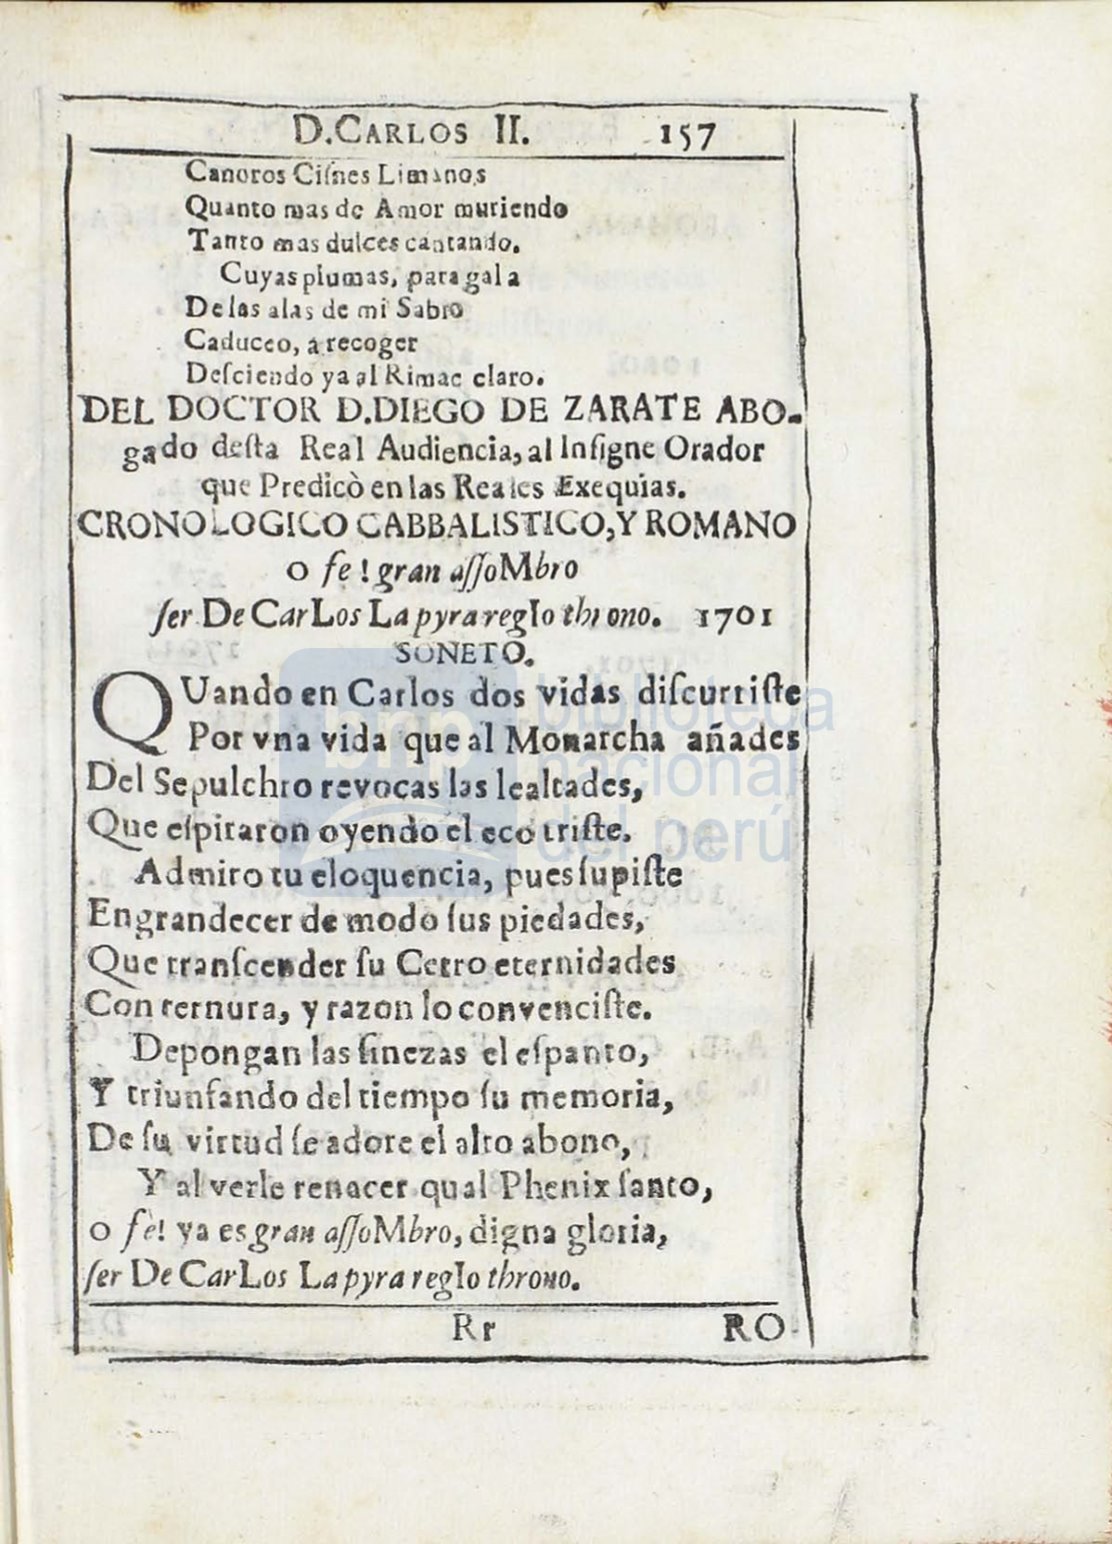 D.CARLOS II. 157
Canoros Ciſnes Limanos
Quanto mas de Amor muriendo
Tanto mas dulces cantando.
Cuyas plumas, para gala
De las alas de mi Sabio
Caduceo, a recoger
Deſciendo ya al Rimac claro.
DEL DOCTOR D.DIEGO DE ZARATE ABO-
gado deſta Real Audiencia, al Inſigne Orador
que Predicò en las Reales Exequias.
CRONOLOGICO CABBALISTICO, Y ROMANO
o fe! gran aſſoMbro
ſer De CarLos La pyra regIo throno. 1701
SONETO.
QUando en Carlos dos vidas diſcurriſte
Por vna vida que al Monarcha añades
Del Sepulchro revocas las lealtades,
Que eſpiraron oyendo el eco triſte.
Admiro tu eloquencia, pues ſupiſte
Engrandecer de modo ſus piedades,
Que tranſcender ſu Cetro eternidades
Con ternura, y razon lo convenciſte.
Depongan las finezas el eſpanto,
Y triunfando del tiempo ſu memoria,
De ſu virtud ſe adore el alto abono,
Y al verle renacer qual Phenix ſanto,
o fè! ya es gran aſſoMbro, digna gloria,
ſer De CarLos La pyra regIo throno.
Rr RO-
brp biblioteca
nacional
del perú